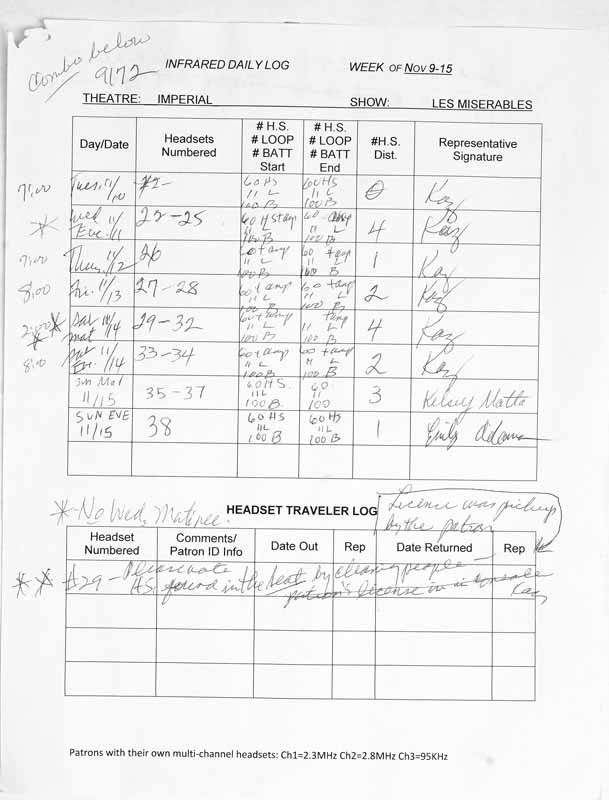 Combo below
9172
INFRARED DAILY LOG WEEK OF NOV 9-15
THEATRE: IMPERIAL SHOW: LES MISERABLES
Day/Date Headsets Numbered # H.S. # LOOP # BATT Start # H.S. # LOOP # BATT End #H.S. Dist. Representative Signature
7:00 Tues. 11/10 60 HS 11 L 100 B 60 HS 11 L 100 B 0 Kaz
* Wed Eve. 11/11 22-25 60 HS + amp 11 L 100 B 60 amp 11 L 100 B 4 Kaz
7:00 Thu. 11/12 26 60 + amp 11 L 100 B 60 + amp 11 L 100 B 1 Kaz
8:00 Fri. 11/13 27-28 60 + amp 11 L 100 B 60 + amp 11 L 100 B 2 Kaz
2:00 ** Sat mat 11/14 29-32 60 + amp 11 L 100 B + amp 11 L 100 B 4 Kaz
8:00 Sat Eve. 11/14 33-34 60 + amp 11 L 100 B 60 + amp 11 L 100 B 2 Kaz
Sun Mat 11/15 35-37 60 HS. 11L 100 B 60 11 100 3 Kelsey Matta
SUN EVE 11/15 38 60 HS 11L 100 B 60 HS 11L 100 B 1 Emily Adams
*-No Wed. Matinee.
HEADSET TRAVELER LOG
License was picked up
by the patron
Headset Numbered Comments/ Patron ID Info Date Out Rep Date Returned Rep
** #29 - Please note
HS. found in the seat by cleaning people -
patron's license in console
Kaz
Patrons with their own multi-channel headsets: Ch1=2.3MHz Ch2=2.8MHz Ch3=95KHz